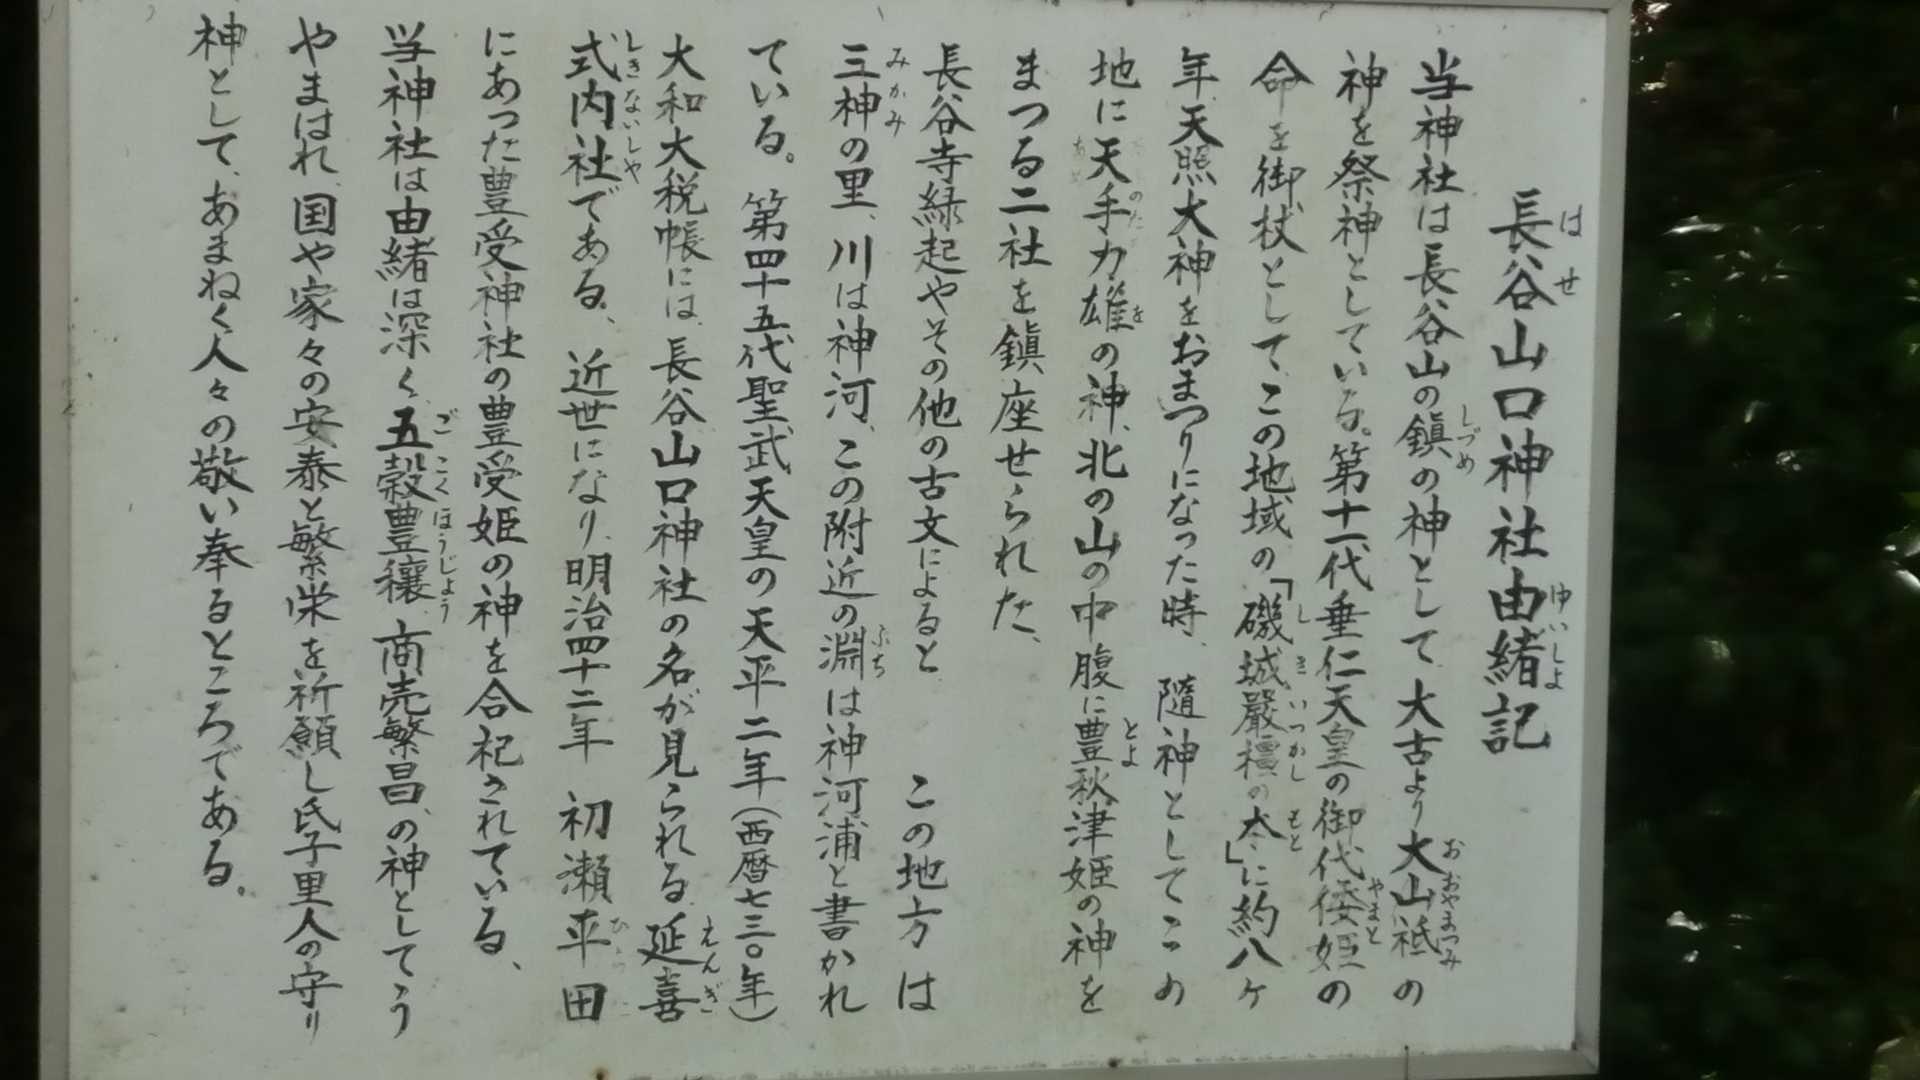 長谷山口神社由緒記
当神社は長谷山の鎮の神として、大古より大山祇の
神を祭神としている。第十一代垂仁天皇の御代倭姫の
命を御杖として、この地域の「磯城嚴橿の本」に約八ヶ
年、天照大神をおまつりになった時、随神としてこの
地に天手力雄の神、北の山の中腹に豊秋津姫の神を
まつる二社を鎮座せられた、
長谷寺縁起やその他の古文によると この地方は
三神の里、川は神河、この附近の淵は神河浦と書かれ
ている。第四十五代聖武天皇の天平二年(西暦七三〇年)
大和大税帳には、長谷山口神社の名が見られる延喜
式内社である、近世になり、明治四十二年 初瀬平田
にあった豊受神社の豊受姫の神を合祀されている、
当神社は由緒は深く、五穀豊穣、商売繁昌、の神としてう
やまはれ、国や家々の安泰と繁栄を祈願し氏子里人の守り
神として、あまねく人々の敬い奉るところである。